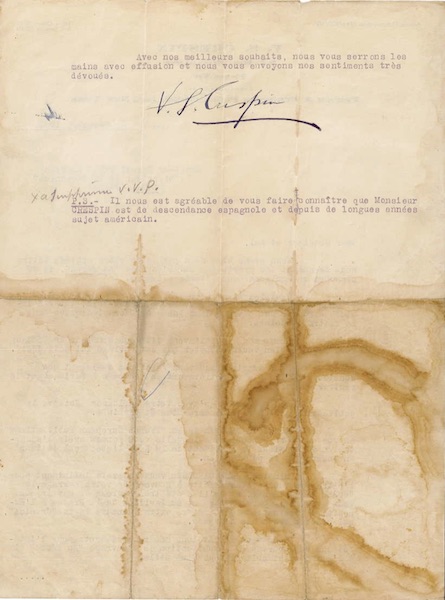 Avec nos meilleurs souhaits, nous vous serrons les
mains avec effusion et nous vous envoyons nos sentiments très
dévoués.
V. S. Crespin
V.V.P.
P.S.- Il nous est agréable de vous faire connaître que Monsieur
CRESPIN est de descendance espagnole et depuis de longues années
sujet américain.